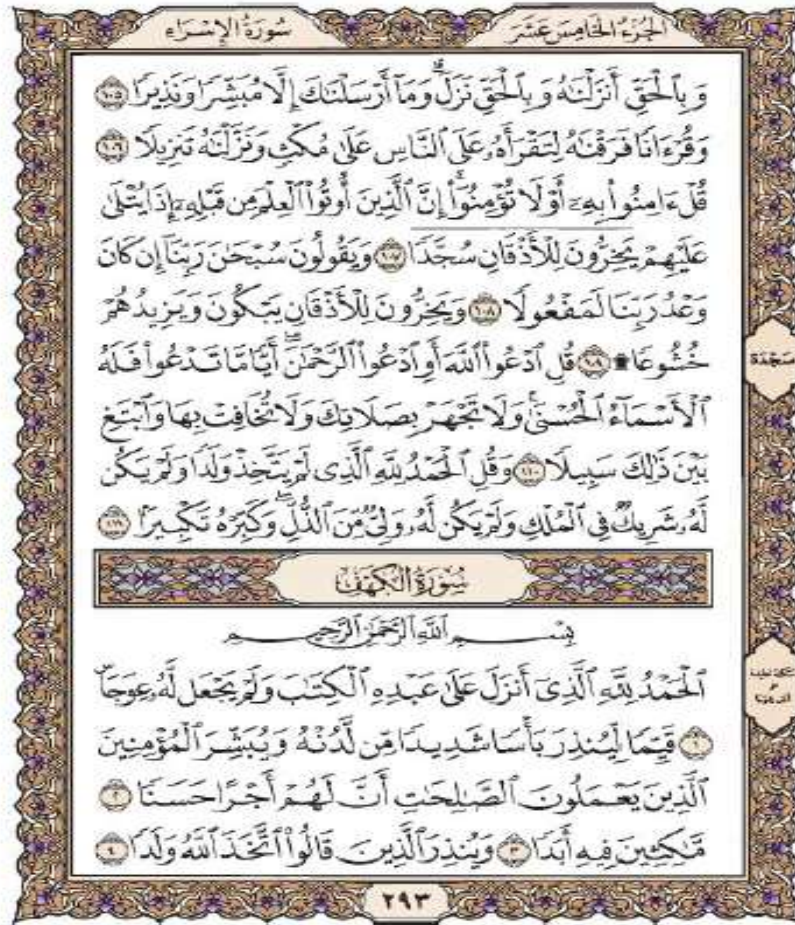 الجزء الخامس عشر
سورة الإسراء
وَبِٱلْحَقِّ أَنزَلْنَٰهُ وَبِٱلْحَقِّ نَزَلَ ۗ وَمَآ أَرْسَلْنَٰكَ إِلَّا مُبَشِّرًا وَنَذِيرًا ١٠٥
وَقُرْءَانًا فَرَقْنَٰهُ لِتَقْرَأَهُۥ عَلَى ٱلنَّاسِ عَلَىٰ مُكْثٍ وَنَزَّلْنَٰهُ تَنزِيلًا ١٠٦
قُلْ ءَامِنُوا۟ بِهِۦٓ أَوْ لَا تُؤْمِنُوٓا۟ ۚ إِنَّ ٱلَّذِينَ أُوتُوا۟ ٱلْعِلْمَ مِن قَبْلِهِۦٓ إِذَا يُتْلَىٰ
عَلَيْهِمْ يَخِرُّونَ لِلْأَذْقَانِ سُجَّدًا ١٠٧ وَيَقُولُونَ سُبْحَٰنَ رَبِّنَآ إِن كَانَ
وَعْدُ رَبِّنَا لَمَفْعُولًا ١٠٨ وَيَخِرُّونَ لِلْأَذْقَانِ يَبْكُونَ وَيَزِيدُهُمْ
خُشُوعًا ۩ ١٠٩ قُلِ ٱدْعُوا۟ ٱللَّهَ أَوِ ٱدْعُوا۟ ٱلرَّحْمَٰنَ ۖ أَيًّا مَّا تَدْعُوا۟ فَلَهُ
سجدة
ٱلْأَسْمَآءُ ٱلْحُسْنَىٰ ۚ وَلَا تَجْهَرْ بِصَلَاتِكَ وَلَا تُخَافِتْ بِهَا وَٱبْتَغِ
بَيْنَ ذَٰلِكَ سَبِيلًا ١١٠ وَقُلِ ٱلْحَمْدُ لِلَّهِ ٱلَّذِى لَمْ يَتَّخِذْ وَلَدًا وَلَمْ يَكُن
لَّهُۥ شَرِيكٌ فِى ٱلْمُلْكِ وَلَمْ يَكُن لَّهُۥ وَلِىٌّ مِّنَ ٱلذُّلِّ ۖ وَكَبِّرْهُ تَكْبِيرًۢا ١١١
سورة الكهف
بِسْمِ ٱللَّهِ ٱلرَّحْمَٰنِ ٱلرَّحِيمِ
ٱلْحَمْدُ لِلَّهِ ٱلَّذِىٓ أَنزَلَ عَلَىٰ عَبْدِهِ ٱلْكِتَٰبَ وَلَمْ يَجْعَل لَّهُۥ عِوَجَاۜ
١ قَيِّمًا لِّيُنذِرَ بَأْسًا شَدِيدًا مِّن لَّدُنْهُ وَيُبَشِّرَ ٱلْمُؤْمِنِينَ
ٱلَّذِينَ يَعْمَلُونَ ٱلصَّٰلِحَٰتِ أَنَّ لَهُمْ أَجْرًا حَسَنًا ٢
مَّٰكِثِينَ فِيهِ أَبَدًا ٣ وَيُنذِرَ ٱلَّذِينَ قَالُوا۟ ٱتَّخَذَ ٱللَّهُ وَلَدًا ٤
٢٩٣